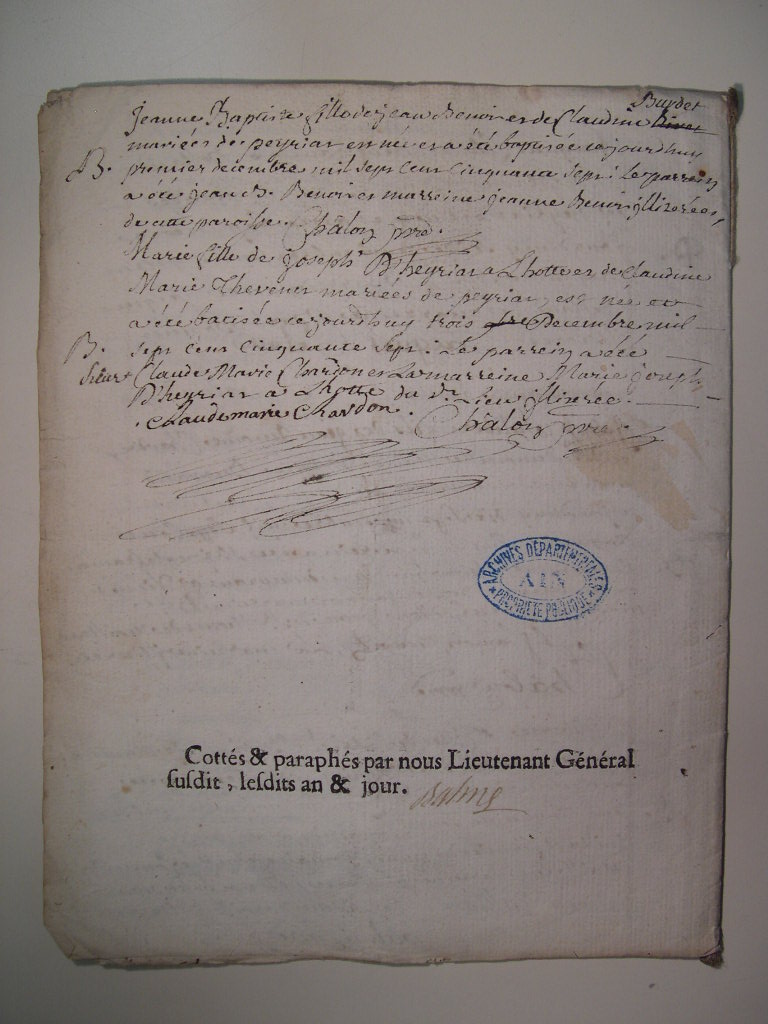 Burdet
Jeanne Baptiste fille de jean Benoit et de Claudine
mariées de peyriat est née et a été baptisée cejourdhuy
B. premier decembre mil sept cent cinquante sept : le parrein
a été jean B. Benoit et marreine jeanne Benoit illiterées,
de cette paroisse. Châlon ptre.
Marie fille de joseph D'heyriat a Lhotte et de Claudine
Marie Thevenet mariées de peyriat, est née et
a été batisée ce jourdhuy trois Decembre mil
B. sept cent cinquante sept : Le parrein a été
sieur Claude Marie Chardon et La marreine Marie joseph
D'heyriat a Lhotte du dt. Lieu illiterée.
Claude marie Chardon. Châlon ptre.
ARCHIVES DÉPARTEMENTALES
AIN
PROPRIÉTÉ PUBLIQUE
Cottés & paraphés par nous Lieutenant Général
ſuſdit, leſdits an & jour.